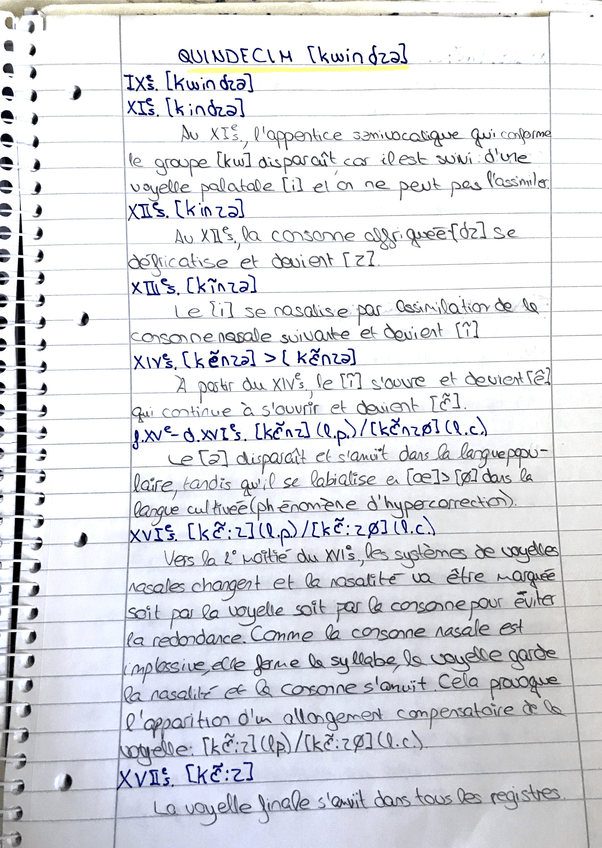 QUINDECIM [kwindzə]
IXᵉs. [kwindzə]
XIᵉs. [kindzə]
Au XIᵉs., l'appentice semivocatique qui conforme
le groupe [kw] disparaît, car il est suivi d'une
voyelle palatale [i] et on ne peut pas l'assimiler.
XIIᵉs. [kinzə]
Au XIIᵉs, la consonne affriquée [dz] se
défricatise et devient [z].
XIIIᵉs. [kĩnzə]
Le [i] se nasalise par assimilation de la
consonne nasale suivante et devient [ĩ]
XIVᵉs. [kẽnzə] > [kɛ̃nzə]
À partir du XIVᵉs, le [ĩ] s'ouvre et devient [ẽ]
qui continue à s'ouvrir et devient [ɛ̃].
f.XVᵉ-d.XVIᵉs. [kɛ̃nz] (l.p.) / [kɛ̃nzø] (l.c.)
Le [ə] disparaît et s'amuït dans la langue popu-
laire, tandis qu'il se labialise en [œ]>[ø] dans la
langue cultivée (phénomène d'hypercorrection).
XVIᵉs. [kɛ̃:z] (l.p) / [kɛ̃:zø] (l.c.)
Vers la 2ᵉ moitié du XVIᵉs, les systèmes de voyelles
nasales changent et la nasalité va être marquée
soit par la voyelle soit par la consonne pour éviter
la redondance. Comme la consonne nasale est
implosive, elle ferme la syllabe, la voyelle garde
la nasalité et la consonne s'amuït. Cela provoque
l'apparition d'un allongement compensatoire de la
voyelle: [kɛ̃:z] (l.p) / [kɛ̃:zø] (l.c.)
XVIIᵉs. [kɛ̃:z]
La voyelle finale s'amuït dans tous les registres.